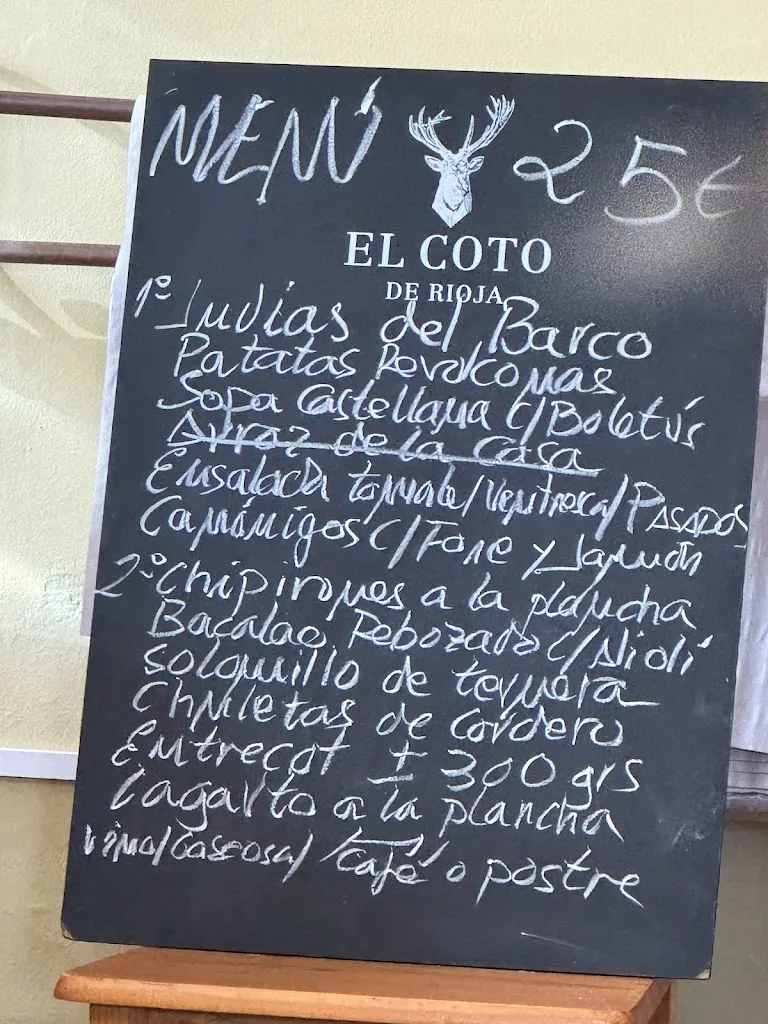 MENÚ 25€
EL COTO
DE RIOJA
1º Judias del Barco
Patatas Revolconas
Sopa Castellana c/Boletus
Arroz de la casa
Ensalada tomate/Ventresca/PASADOS
c/Foie y Jamón
2º Chipirones a la plancha
Bacalao Rebozado c/Alioli
solomillo de ternera
Chuletas de cordero
Entrecot ± 300 grs
Lagarto a la plancha
Vino/Gaseosa/ Café o postre